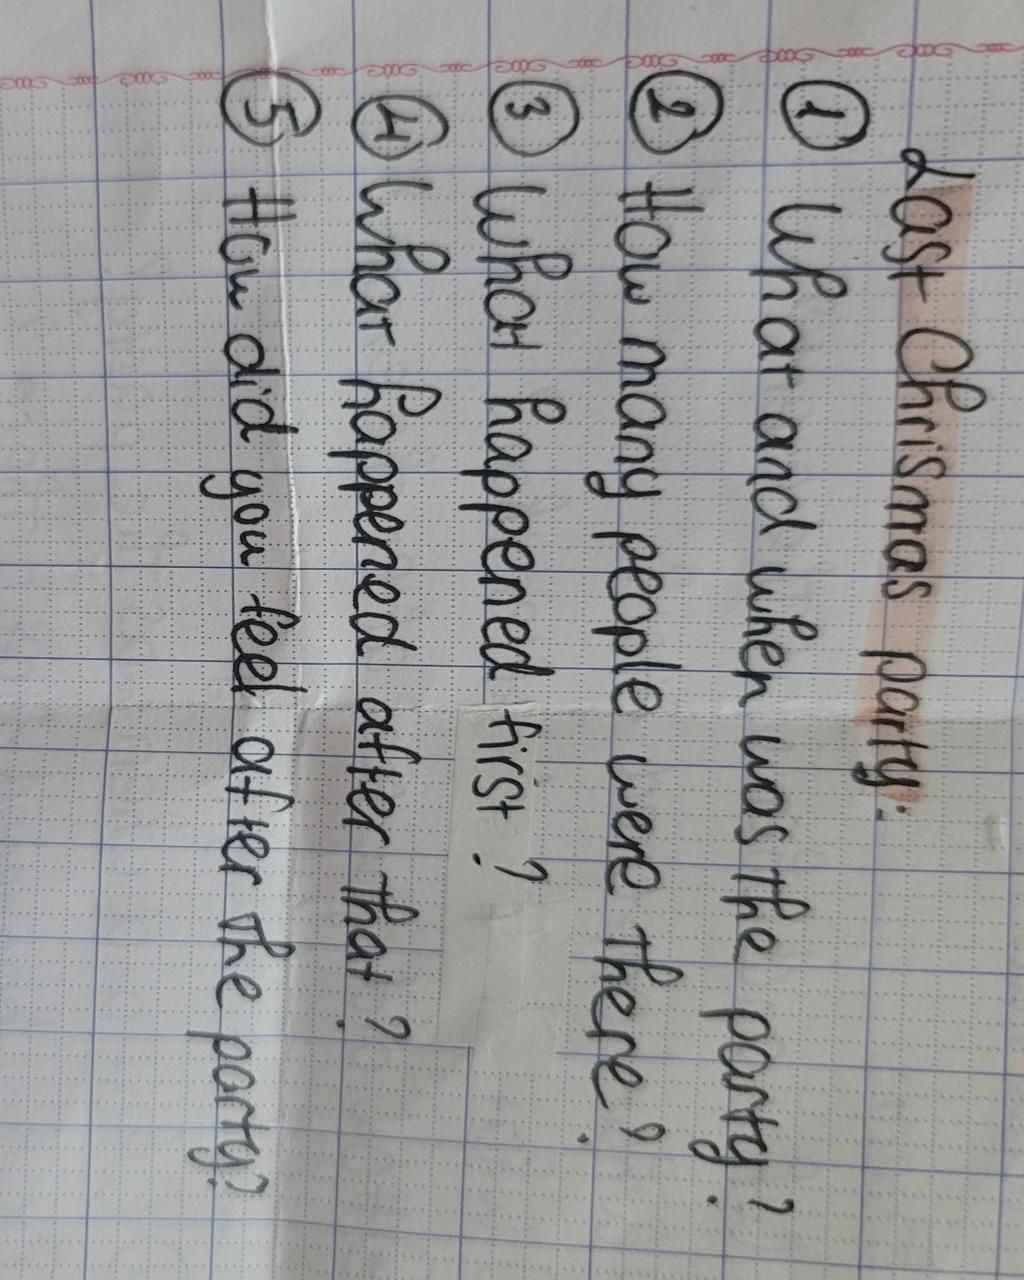 Last Chrismas party:
① What and when was the party?
② How many people were there?
③ What happened first?
④ What happened after that?
⑤ How did you feel after the party?